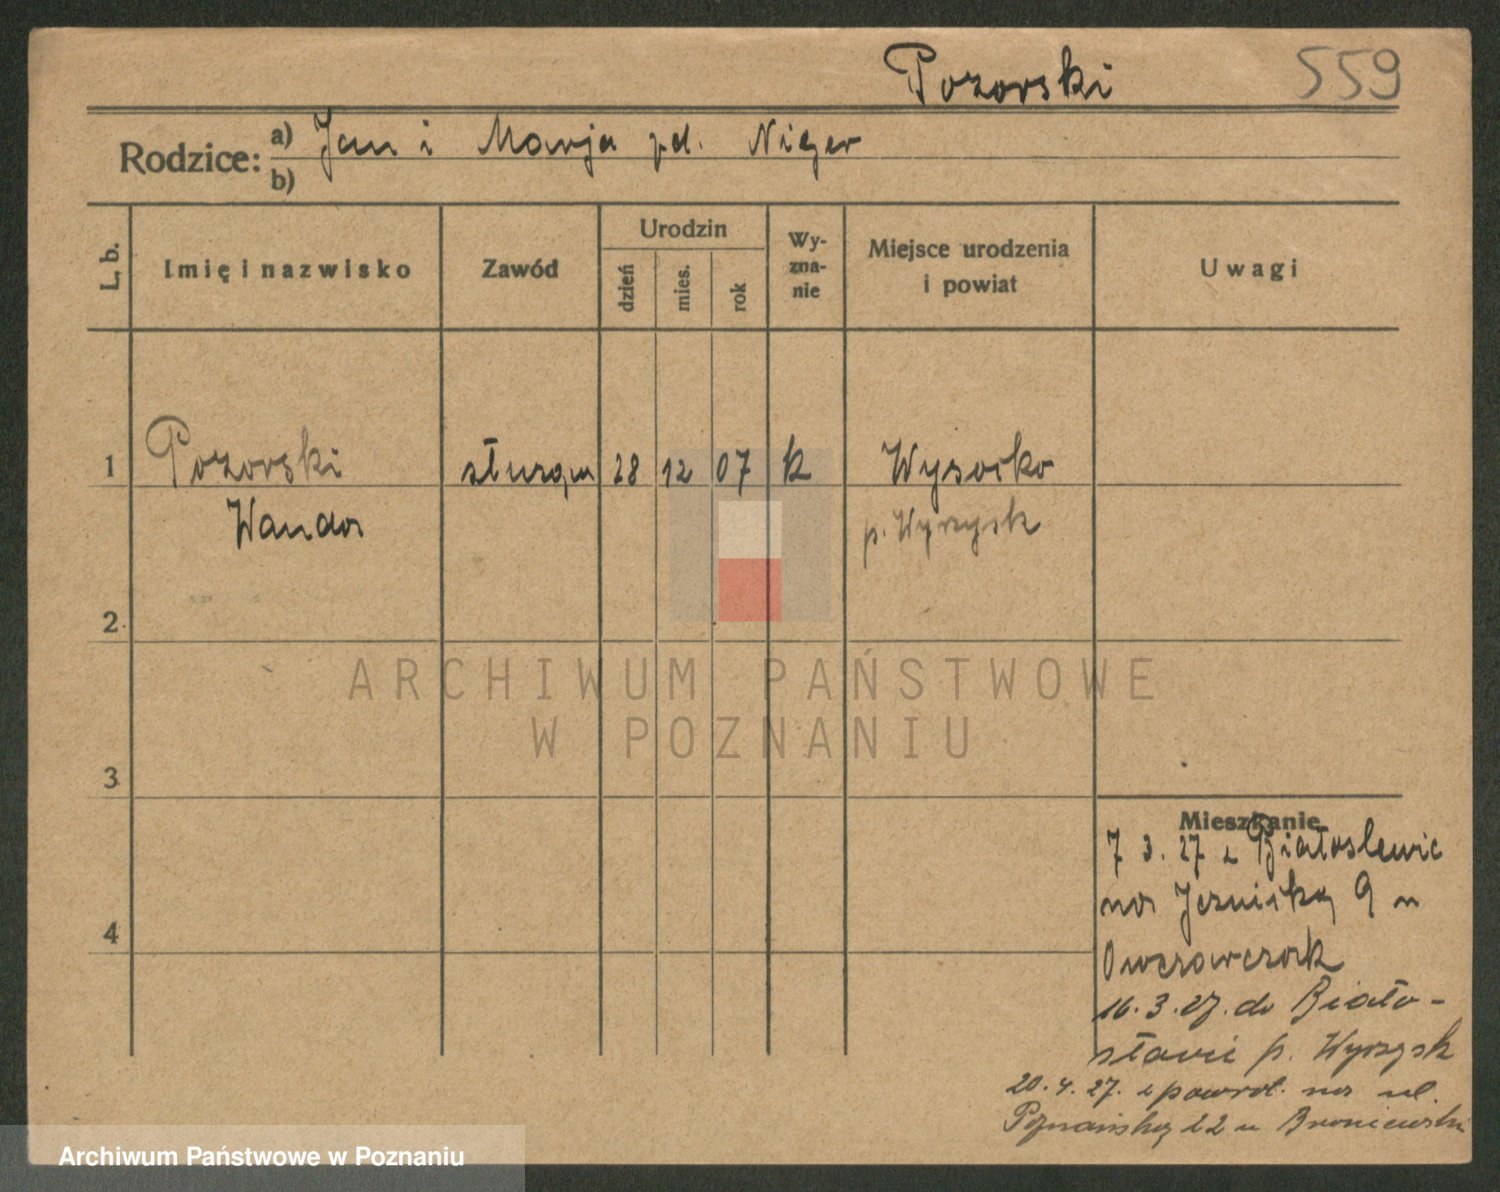 Pozorski 559
Rodzice: a) Jan i Marja pd. Niger
b)
L. b. Imię i nazwisko Zawód Urodzin Wy-
zna-
nie Miejsce urodzenia
i powiat Uwagi
dzień mies. rok
1 Pozorski służąca 28 12 07 k Wysoka
Wanda p. Wyrzysk
2
ARCHIWUM PAŃSTWOWE
W POZNANIU
3
Mieszkanie
7 3. 27 z Białosliwic
na 9 u
Owczarczak
16. 3. 27. do Biało-
śliwie p. Wyrzysk
20. 4. 27. z powrot. na ul.
Poznańską 22 u Broniewski
4
Archiwum Państwowe w Poznaniu